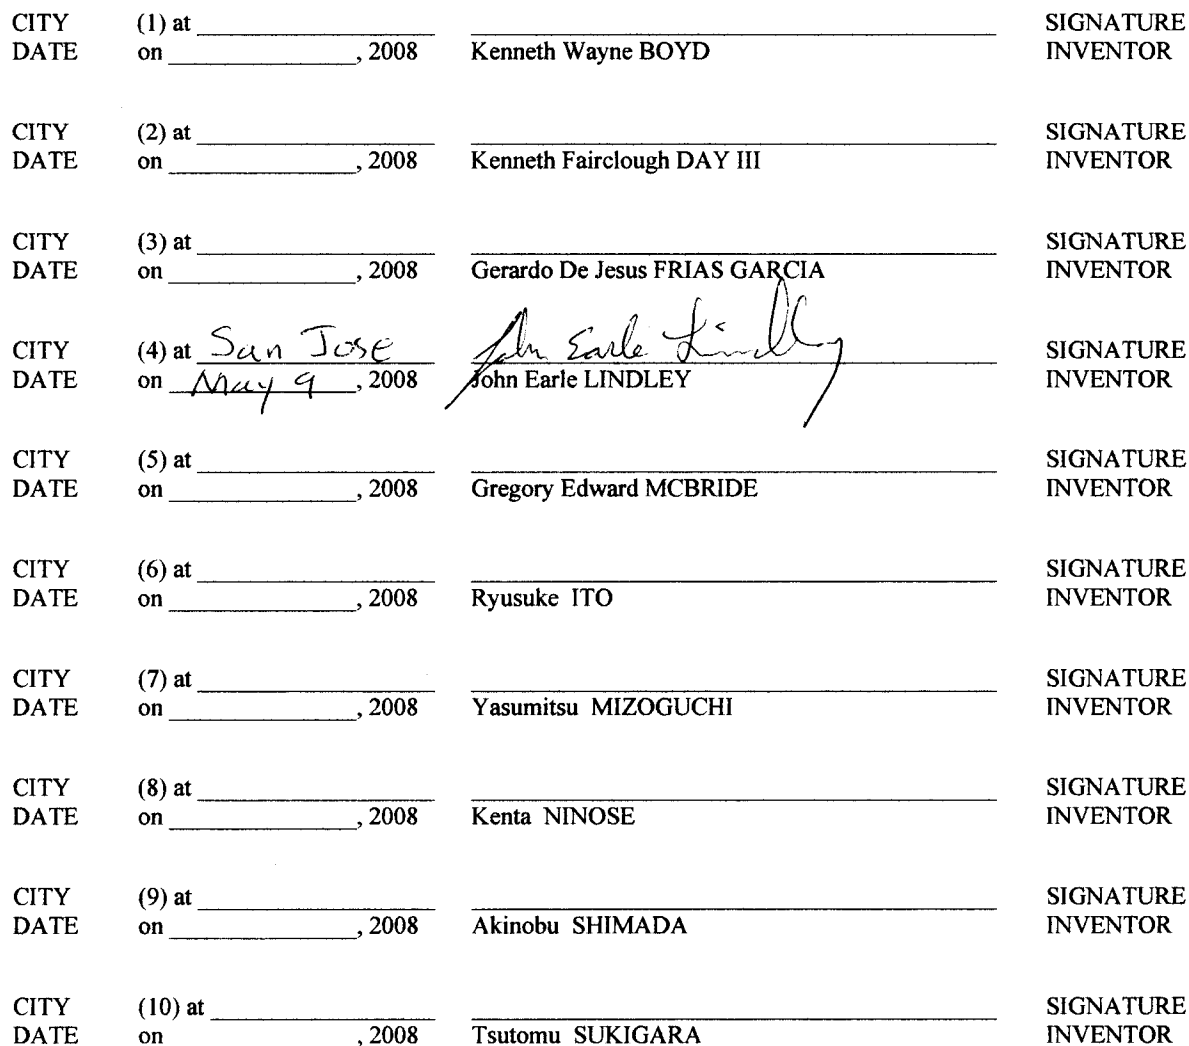 CITY (1) at SIGNATURE
DATE on , 2008 Kenneth Wayne BOYD INVENTOR
CITY (2) at SIGNATURE
DATE on , 2008 Kenneth Fairclough DAY III INVENTOR
CITY (3) at SIGNATURE
DATE on , 2008 Gerardo De Jesus FRIAS GARCIA INVENTOR
CITY (4) at San Jose John Earle Lindley SIGNATURE
DATE on May 9 , 2008 John Earle LINDLEY INVENTOR
CITY (5) at SIGNATURE
DATE on , 2008 Gregory Edward MCBRIDE INVENTOR
CITY (6) at SIGNATURE
DATE on , 2008 Ryusuke ITO INVENTOR
CITY (7) at SIGNATURE
DATE on , 2008 Yasumitsu MIZOGUCHI INVENTOR
CITY (8) at SIGNATURE
DATE on , 2008 Kenta NINOSE INVENTOR
CITY (9) at SIGNATURE
DATE on , 2008 Akinobu SHIMADA INVENTOR
CITY (10) at SIGNATURE
DATE on , 2008 Tsutomu SUKIGARA INVENTOR